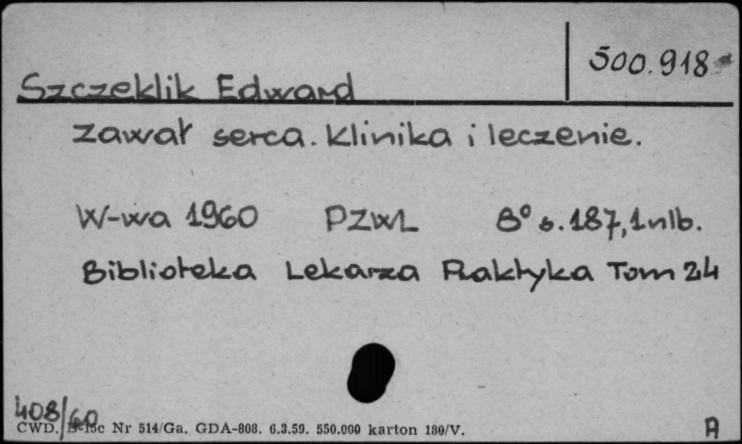 500.918
Szczeklik Edward
Zawał serca. Klinika i leczenie.
W-wa 1960 PZWL 8° s. 187, 1 nlb.
Biblioteka Lekarza Praktyka Tom 24
408/60
CWD. Nr 514/Ga. GDA-808. 6.3.59. 550.000 karton 180/V.
A